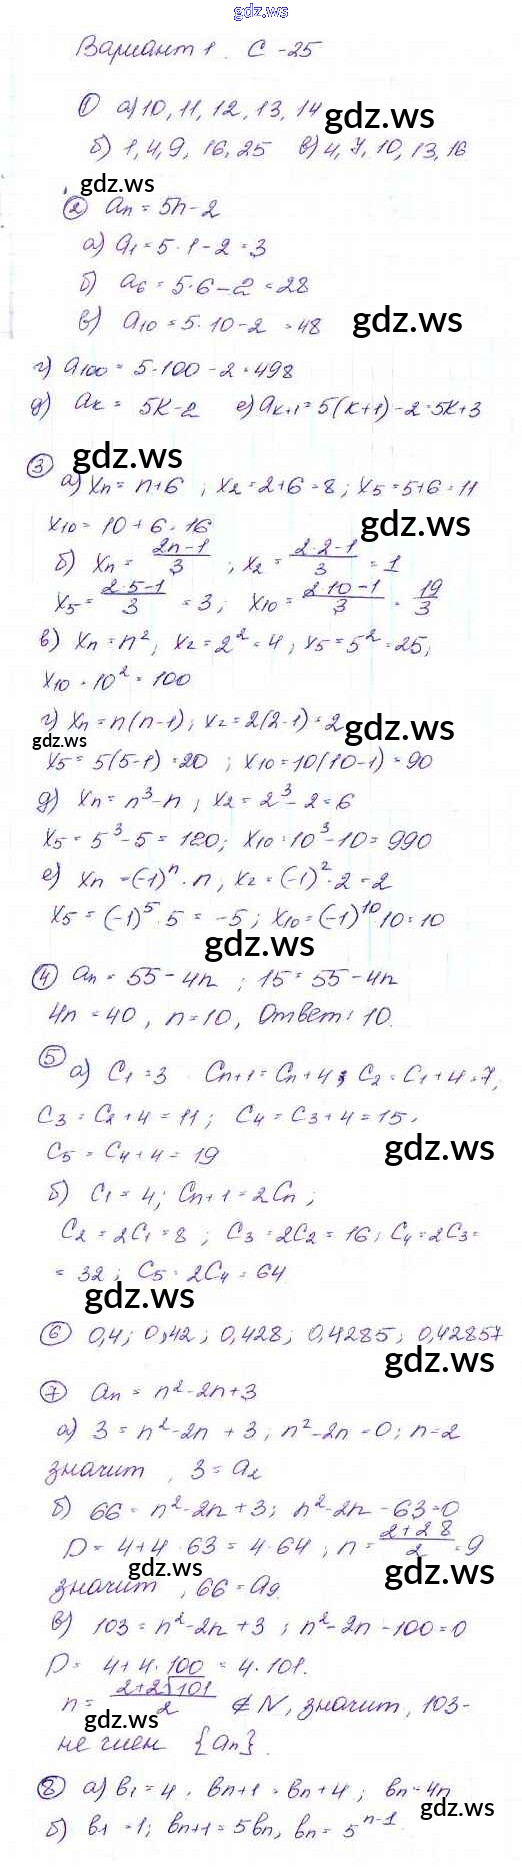 gdz.ws
Вариант 1. С-25
① а) 10, 11, 12, 13, 14
gdz.ws
б) 1, 4, 9, 16, 25 в) 4, 7, 10, 13, 16
gdz.ws
② an = 5n-2
а) a1 = 5·1-2=3
б) a6 = 5·6-2=28
в) a10 = 5·10-2=48
gdz.ws
г) a100 = 5·100-2=498
д) ak = 5k-2 е) ak+1=5(k+1)-2=5k+3
gdz.ws
③ а) xn = n+6 ; x2=2+6=8; x5=5+6=11
x10= 10+6=16
gdz.ws
б) xn = (2n-1)/3, x2= (2·2-1)/3 = 1
x5= (2·5-1)/3 = 3; x10= (2·10-1)/3 = 19/3
в) xn=n²; x2=2²=4; x5=5²=25;
x10=10²=100
г) xn=n(n-1); x2=2(2-1)=2
gdz.ws
gdz.ws
x5=5(5-1)=20 ; x10=10(10-1)=90
д) xn=n³-n; x2=2³-2=6
x5=5³-5=120; x10=10³-10=990
е) xn=(-1)ⁿ·n; x2=(-1)²·2=2
x5=(-1)⁵·5=-5; x10=(-1)¹⁰·10=10
gdz.ws
④ an = 55-4n ; 15=55-4n
4n=40, n=10, Ответ: 10.
⑤ а) C1=3 Cn+1=Cn+4; C2=C1+4=7;
C3=C2+4=11; C4=C3+4=15;
gdz.ws
C5=C4+4=19
б) C1=4; Cn+1=2Cn;
C2=2C1=8; C3=2C2=16; C4=2C3=
=32; C5=2C4=64
gdz.ws
⑥ 0,4; 0,42; 0,428; 0,4285; 0,42857
gdz.ws
⑦ an = n²-2n+3
а) 3=n²-2n+3; n²-2n=0; n=2
значит, 3=a2
б) 66=n²-2n+3; n²-2n-63=0
D=4+4·63=4·64; n= (2+28)/2 =9
gdz.ws
gdz.ws
значит, 66=a9.
в) 103=n²-2n+3; n²-2n-100=0
D= 4+4·100=4·101.
n= (2+2√101)/2 ∉N, значит, 103-
gdz.ws
не член {an}.
⑧ а) b1=4, bn+1=bn+4; bn=4n
gdz.ws
б) b1=1; bn+1=5bn, bn=5ⁿ⁻¹.